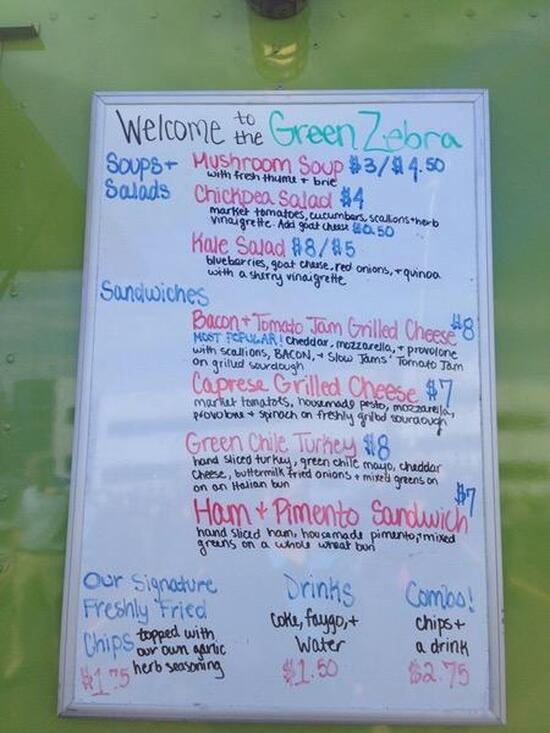 Welcome to the Green Zebra
Soups + Salads
Mushroom Soup $3/$4.50
with fresh thyme + brie
Chickpea Salad $4
market tomatoes, cucumbers, scallions + herb
vinaigrette. Add goat cheese $0.50
Kale Salad $8/$5
blueberries, goat cheese, red onions, + quinoa
with a sherry vinaigrette
Sandwiches
Bacon + Tomato Jam Grilled Cheese $8
MOST POPULAR! Cheddar, mozzarella, + provolone
with scallions, BACON, + Slow Jams' Tomato Jam
on grilled sourdough
Caprese Grilled Cheese $7
market tomatoes, housemade pesto, mozzarella,
provolone + spinach on freshly grilled sourdough
Green Chile Turkey $8
hand sliced turkey, green chile mayo, cheddar
cheese, buttermilk fried onions + mixed greens on
on an Italian bun
Ham + Pimento Sandwich $7
hand sliced ham, housemade pimento, + mixed
greens on a whole wheat bun
Our Signature
Freshly Fried
Chips topped with
our own garlic
herb seasoning
$1.75
Drinks
coke, faygo, +
water
$1.50
Combo!
chips +
a drink
$2.75